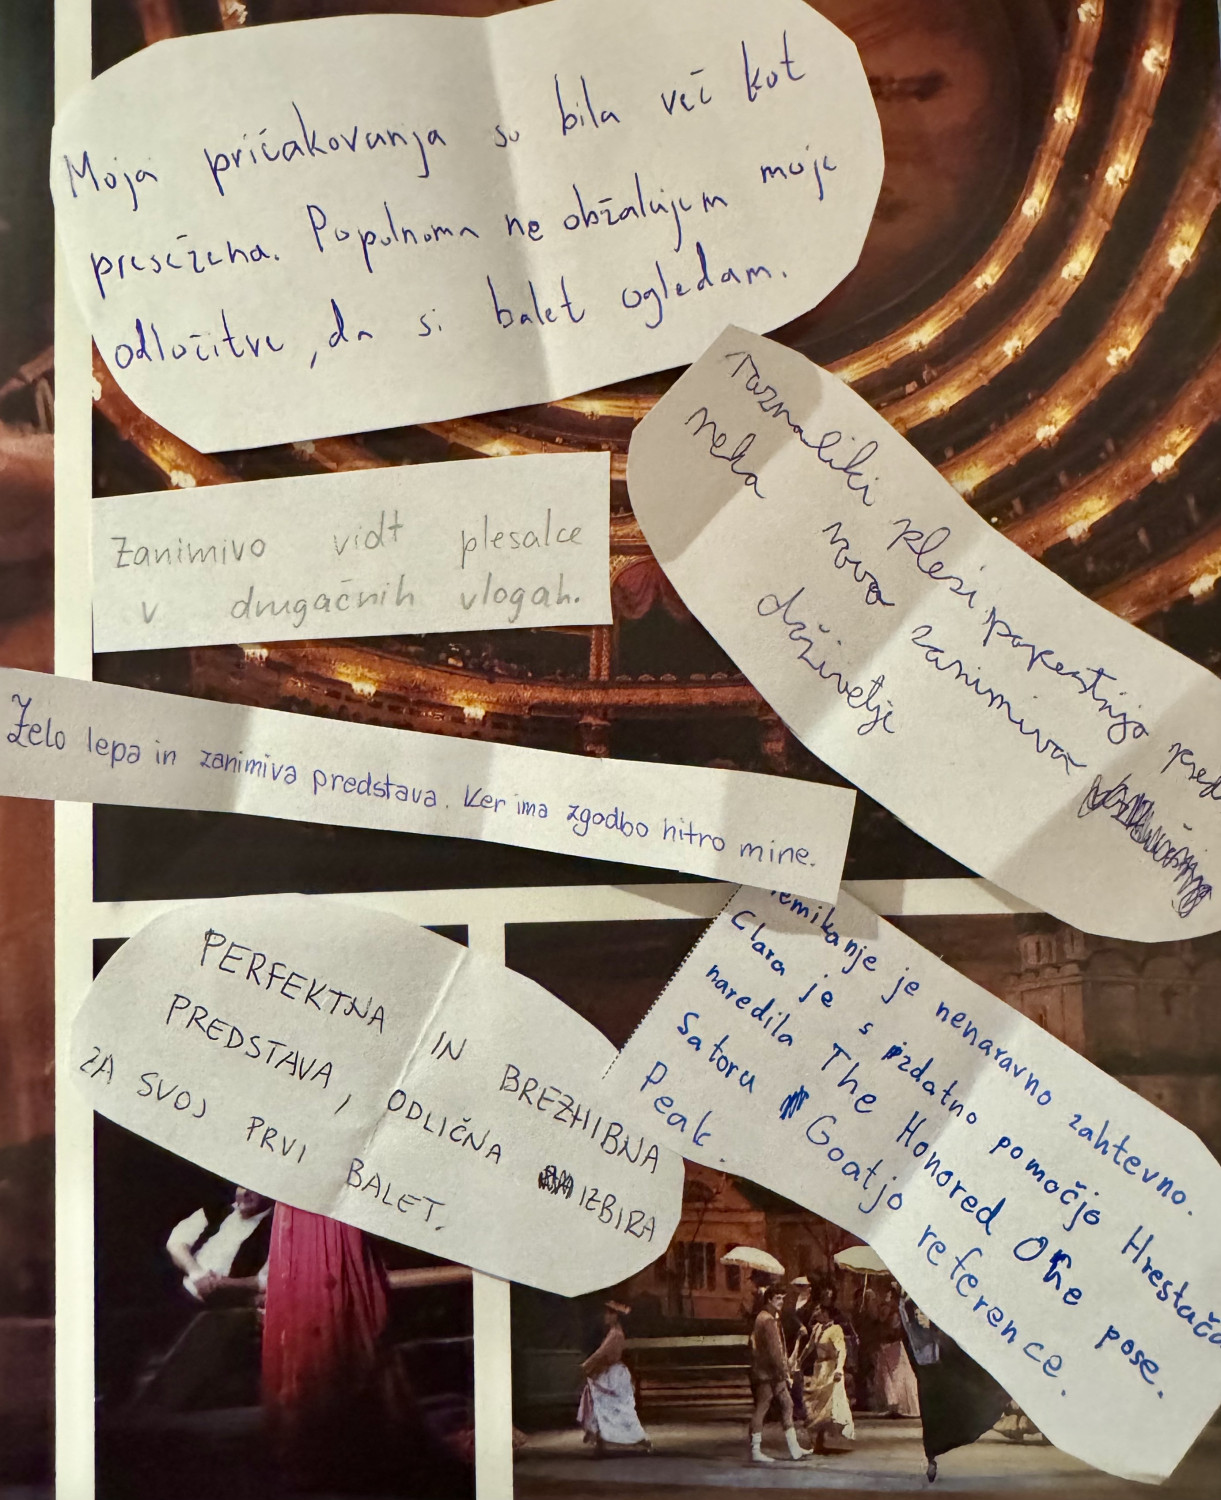 Moja pričakovanja so bila več kot
presežena. Popolnoma ne obžalujem moje
odločitve, da si balet ogledam.
Raznaliki plesi popestrijo pred
neka nova zanimiva
doživetje
Zanimivo vidt plesalce
v drugačnih vlogah.
Zelo lepa in zanimiva predstava. Ker ima zgodbo hitro mine.
PERFEKTNA IN BREZHIBNA
PREDSTAVA, ODLIČNA IZBIRA
ZA SVOJ PRVI BALET.
je nenaravno zahtevno.
Clara je s izdatno pomočjo Hrestača
naredila The Honored One pose.
Satoru Goatjo reference.
Peak.